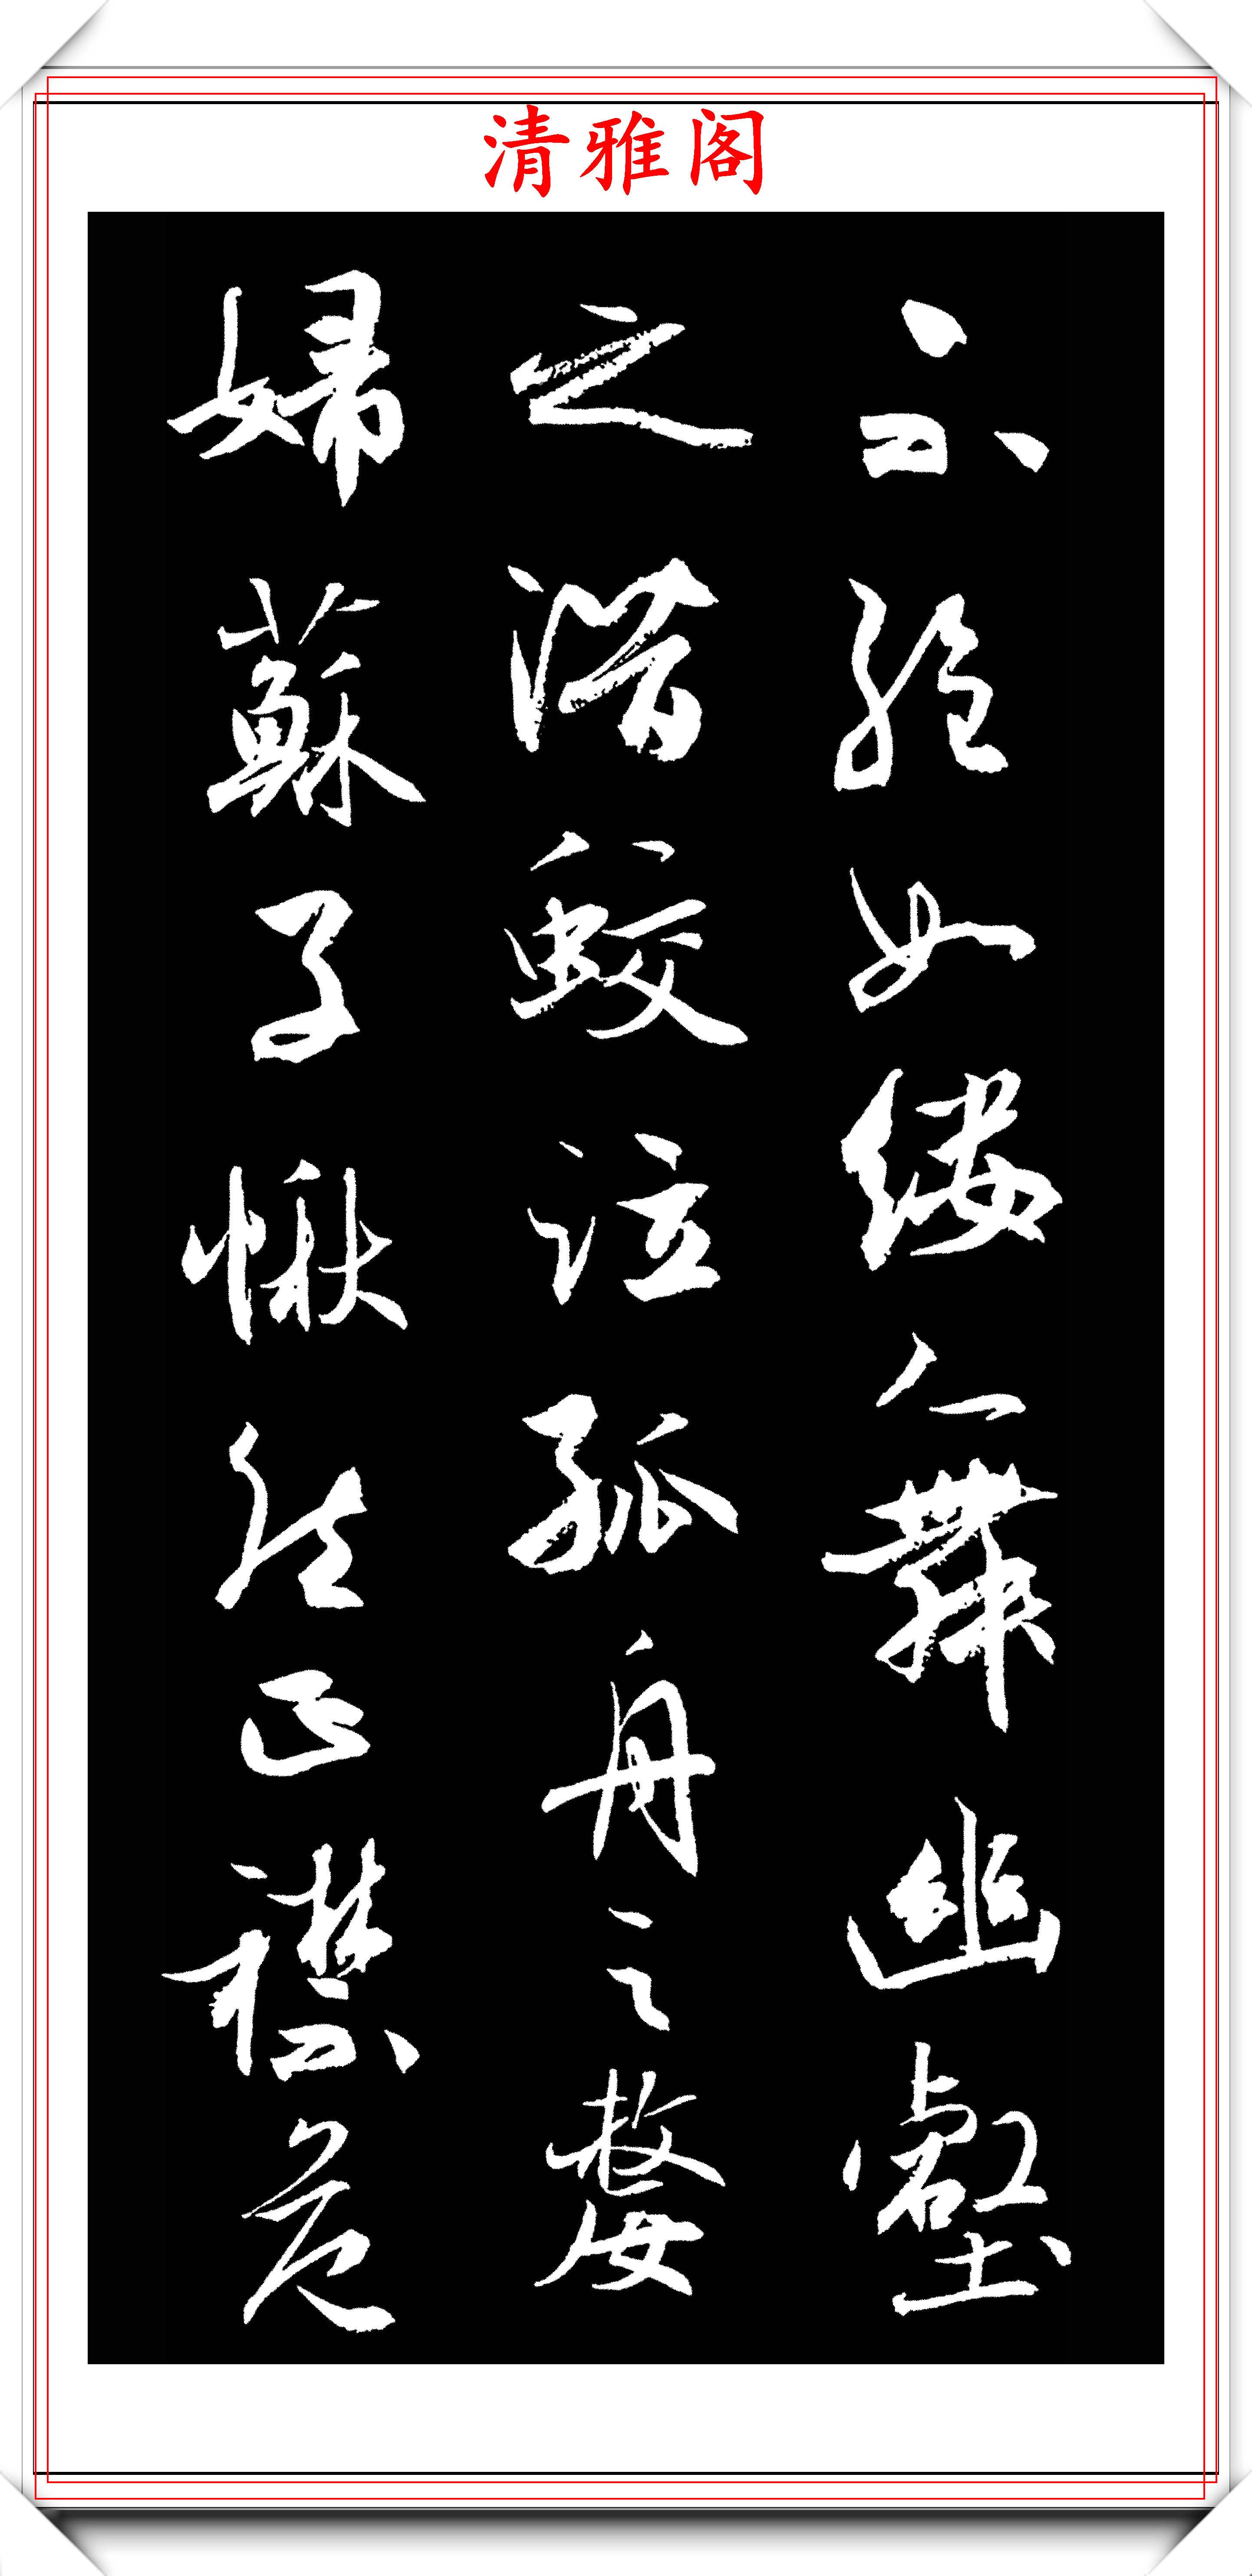 清雅阁
不絕如縷舞幽壑
之潛蛟泣孤舟之嫠
婦蘇子愀然正襟危